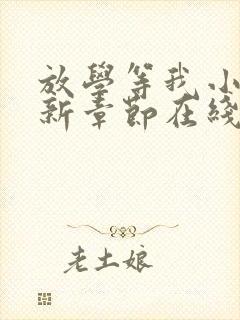 放學等我小
新章節在綫
老土娘